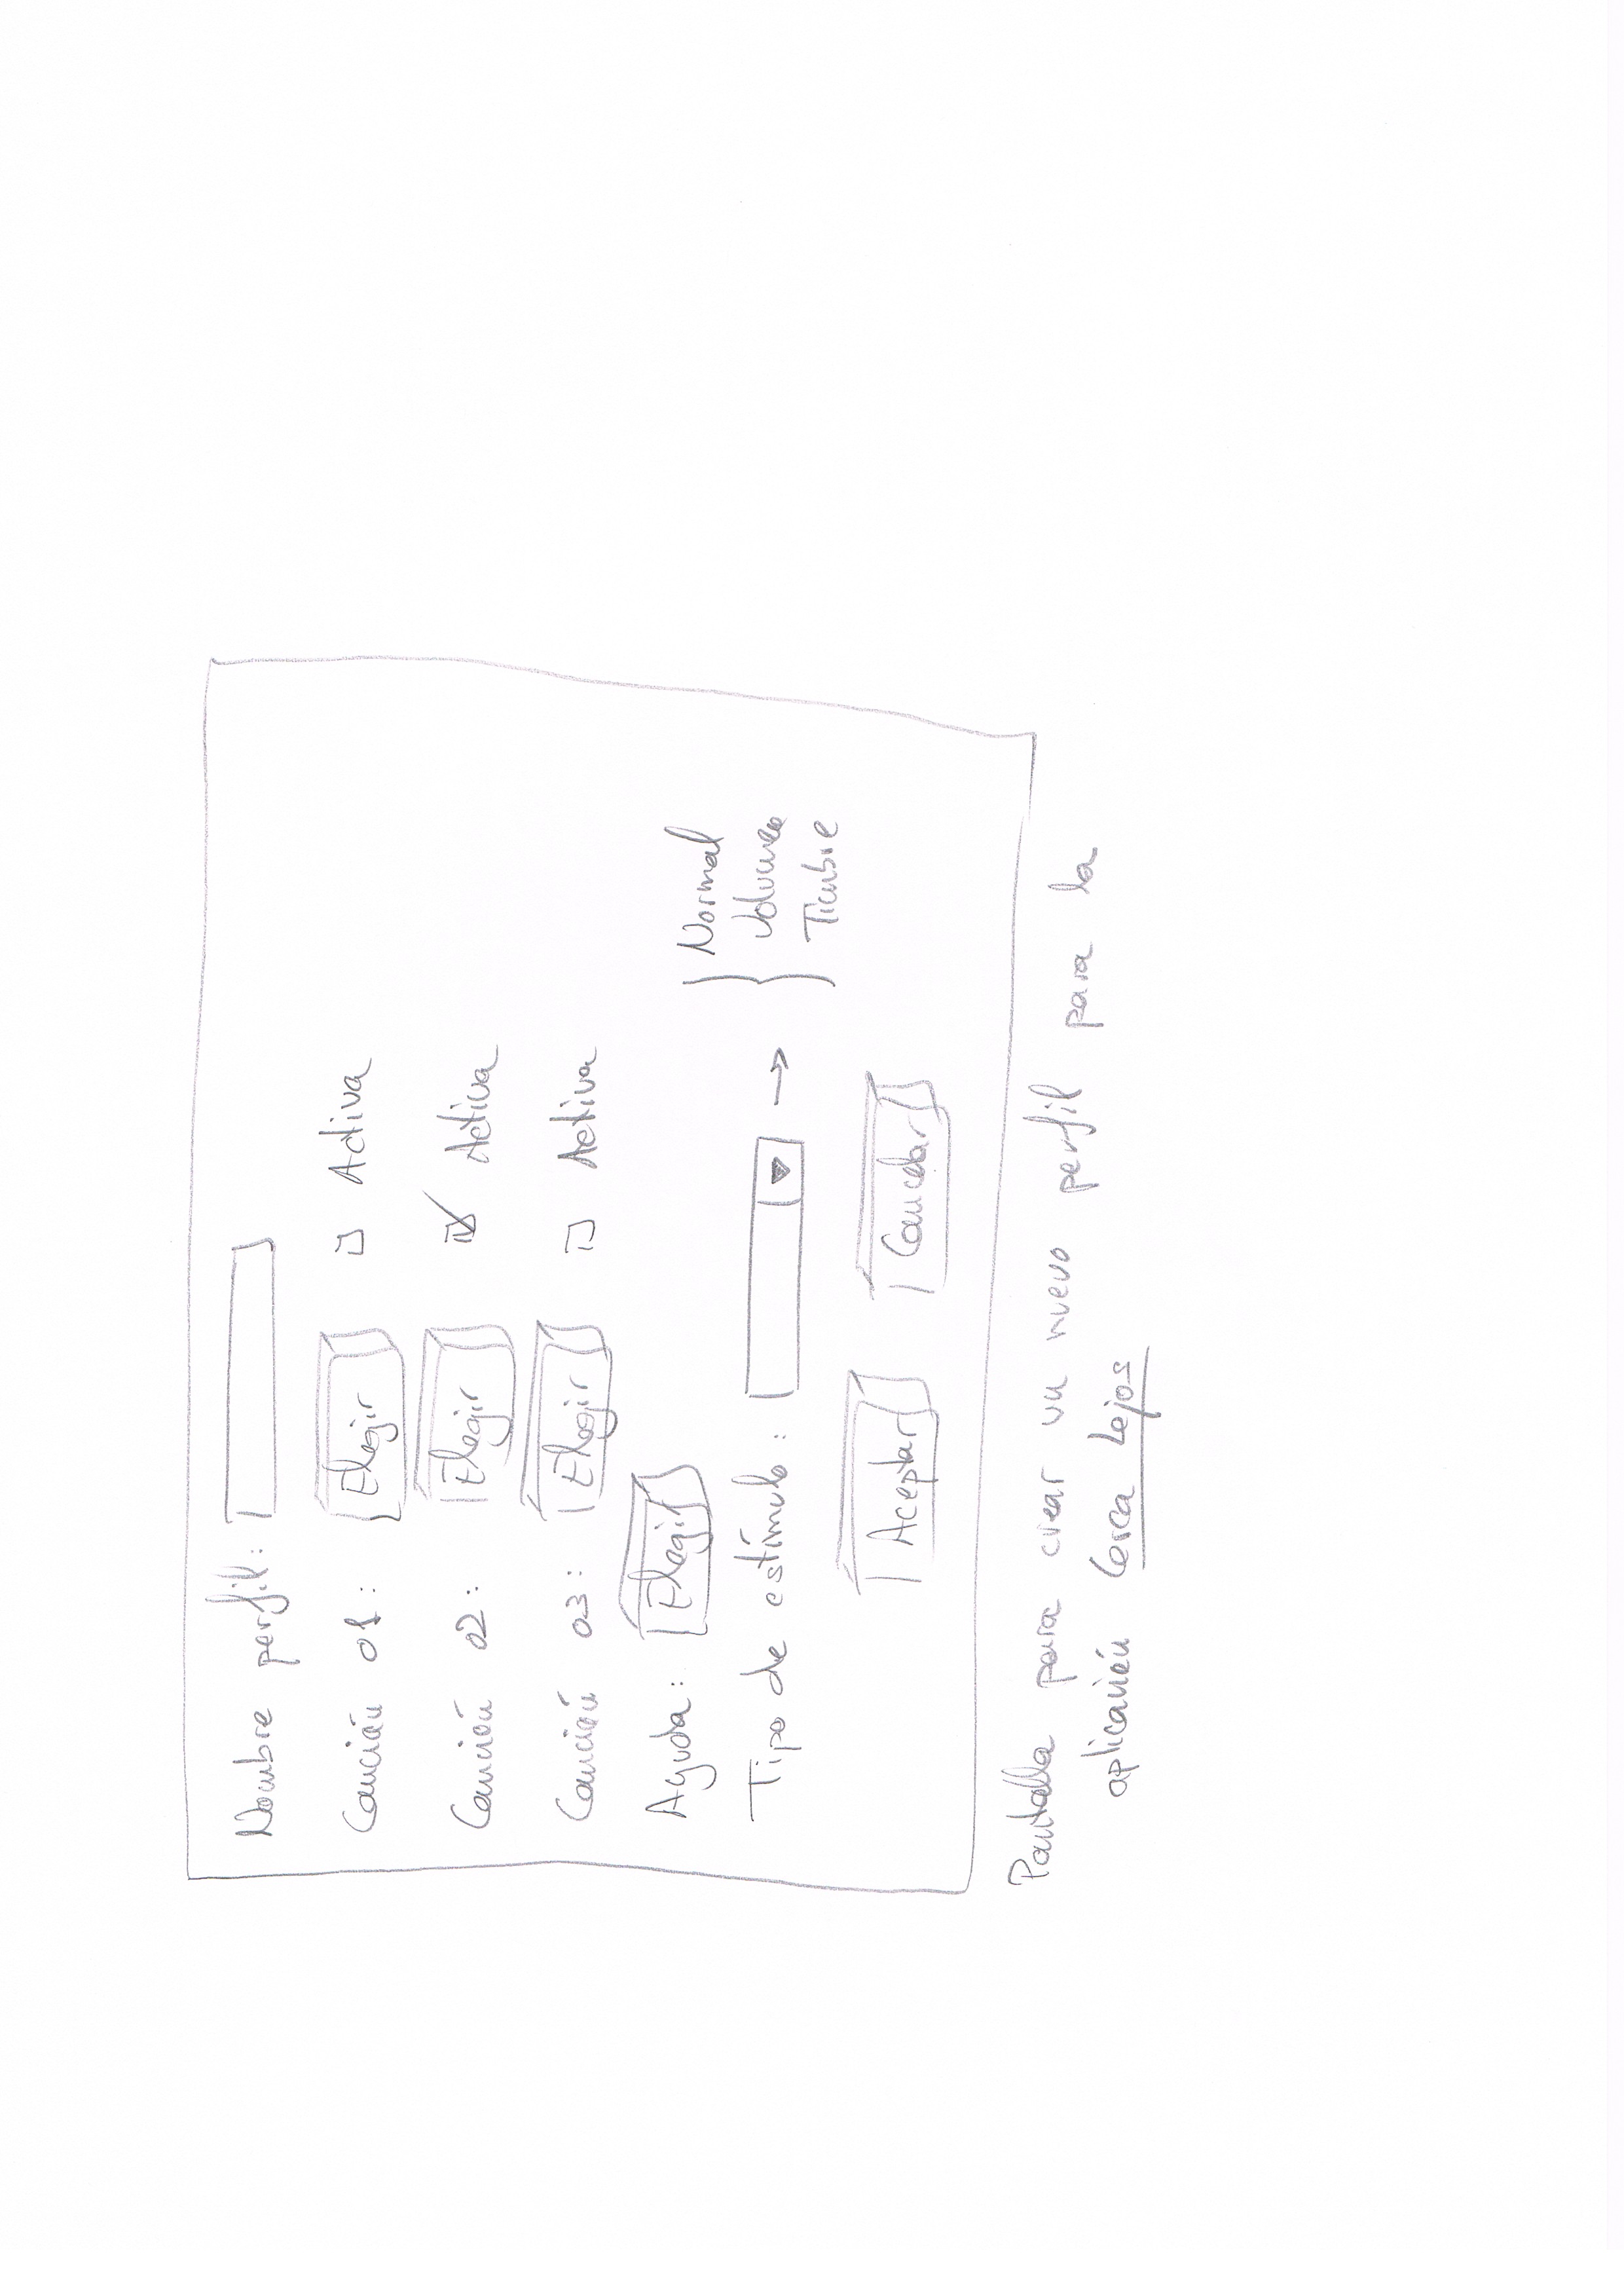 Nombre perfil:
Canción 01: Elegir Activa
Canción 02: Elegir Activa
Canción 03: Elegir Activa
Ayuda: Elegir
Tipo de estímulo: → Normal
Volumen
Timbre
Aceptar Cancelar
Pantalla para crear un nuevo perfil para la
aplicación Cerca Lejos